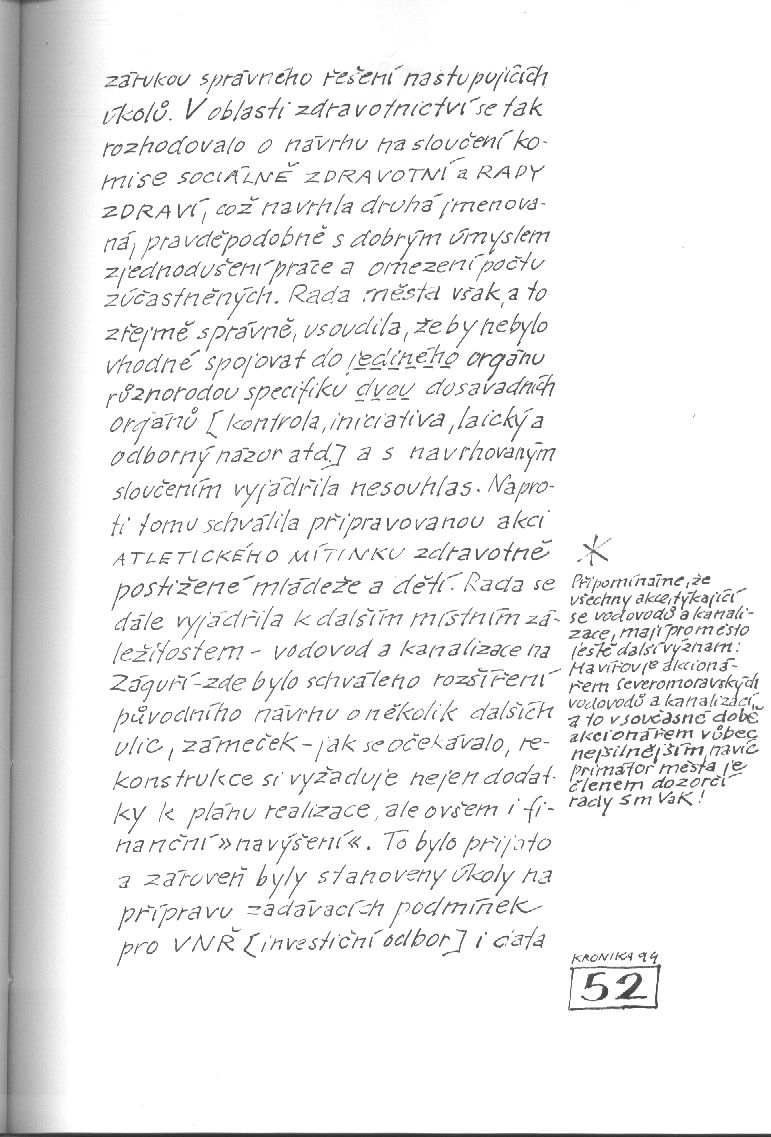 zárukou správného řešení nastupujících
úkolů. V oblasti zdravotnictví se tak
rozhodovalo o návrhu na sloučení ko-
mise SOCIÁLNĚ ZDRAVOTNÍ a RADY
ZDRAVÍ, což navrhla druhá jmenova-
ná, pravděpodobně s dobrým úmyslem
zjednodušení práce a omezení počtu
zúčastněných. Rada města však, a to
zřejmě správně, usoudila, že by nebylo
vhodné spojovat do jediného orgánu
různorodou specifiku dvou dosavadních
orgánů [kontrola, iniciativa, laický a
odborný názor atd.] a s navrhovaným
sloučením vyjádřila nesouhlas. Napro-
ti tomu schválila připravovanou akci
ATLETICKÉHO MÍTINKU zdravotně
postižené mládeže a dětí. Rada se
dále vyjádřila k dalším místním zá-
ležitostem - vodovod a kanalizace na
Záguří - zde bylo schváleno rozšíření
původního návrhu o několik dalších
ulic, zámeček - jak se očekávalo, re-
konstrukce si vyžaduje nejen dodat-
ky k plánu realizace, ale ovšem i fi-
nanční »navýšení«. To bylo přijato
a zároveň byly stanoveny úkoly na
přípravu zadávacích podmínek
pro VNŘ [investiční odbor] i data
*
Připomínáme, že
všechny akce, týkající
se vodovodů a kanali-
zace, mají pro město
ještě další význam:
Havířov je akcioná-
řem Severomoravských
vodovodů a kanalizací
a to v současné době
akcionářem vůbec
nejsilnějším, navíc
primátor města je
členem dozorčí
rady SmVaK!
KRONIKA 94
52